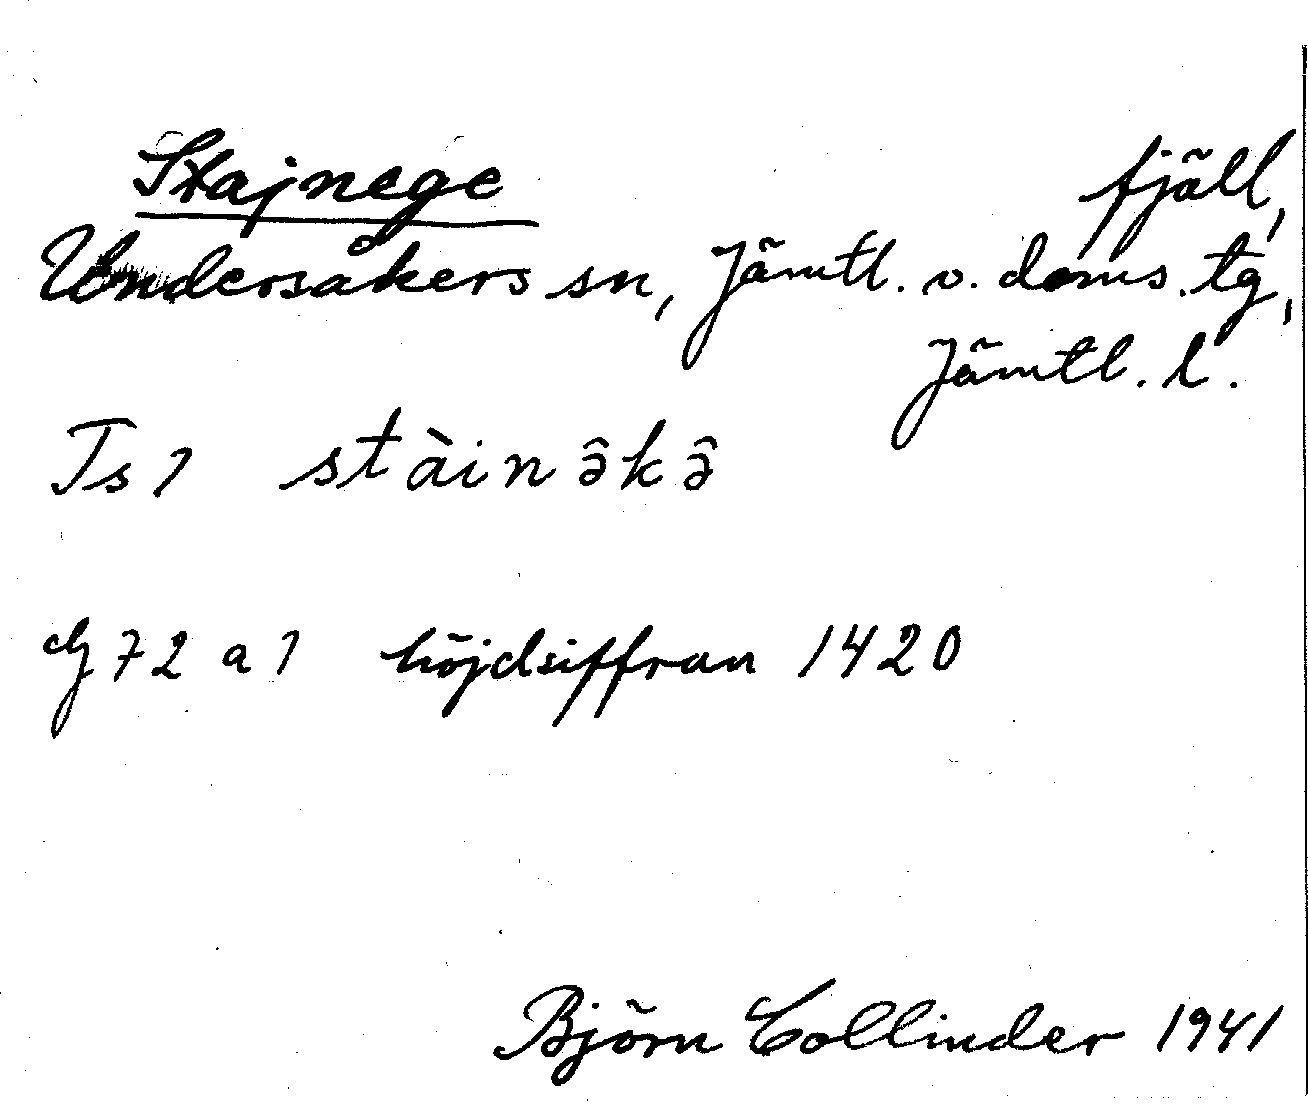 Stajnege fjäll,
Undersåkers sn, Jämtl. v. doms. tg,
Jämtl. l.
Ts 1 stàinə̂kə̂
G 72 a 1 höjdsiffran 1420
Björn Collinder 1941